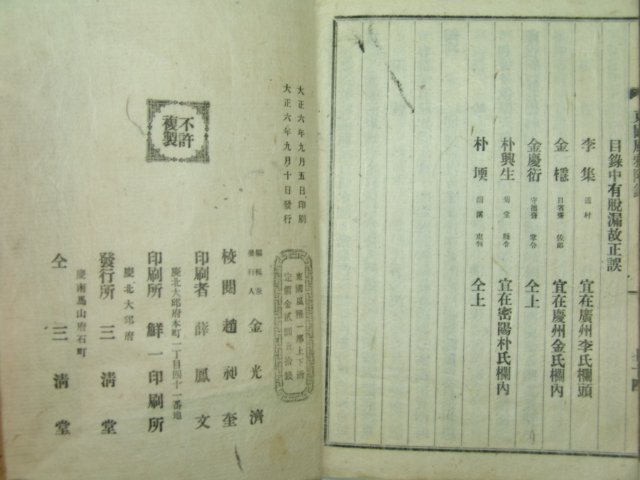 目錄中有脫漏故正誤
李集 遁村 宜在廣州李氏欄頭
金穩 佐郞 宜在慶州金氏欄內
金慶衍 守德齋 掌令 仝上
朴興生 菊堂 縣令 宜在密陽朴氏欄內
朴 仝上
不許複製
大正六年九月五日印刷
大正六年九月十日發行
東國風雅一部上下
定價金貳圓五拾錢
編輯兼發行人 金光濟
校閱 趙昶奎
印刷者 薛鳳文
慶北大邱府本町一丁目四十一番地
印刷所 鮮一印刷所
慶北大邱府
發行所 三淸堂
慶南馬山府石町
仝 三淸堂